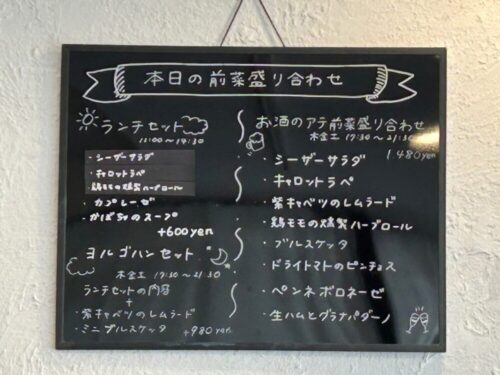 本日の前菜盛り合わせ
ランチセット
11:00〜14:30
・シーザーサラダ
・キャロットラペ
・鶏モモの燻製ハーブロール
・カプレーゼ
・かぼちゃのスープ
+600yen
ヨルゴハンセット
木金土 17:30〜21:30
ランチセットの内容
+
・紫キャベツのレムラード
・ミニブルスケッタ
+980yen
お酒のアテ前菜盛り合わせ
木金土 17:30〜21:30
1480yen
・シーザーサラダ
・キャロットラペ
・紫キャベツのレムラード
・鶏モモの燻製ハーブロール
・ブルスケッタ
・ドライトマトのピンチョス
・ペンネボロネーゼ
・生ハムとグラナパダーノ